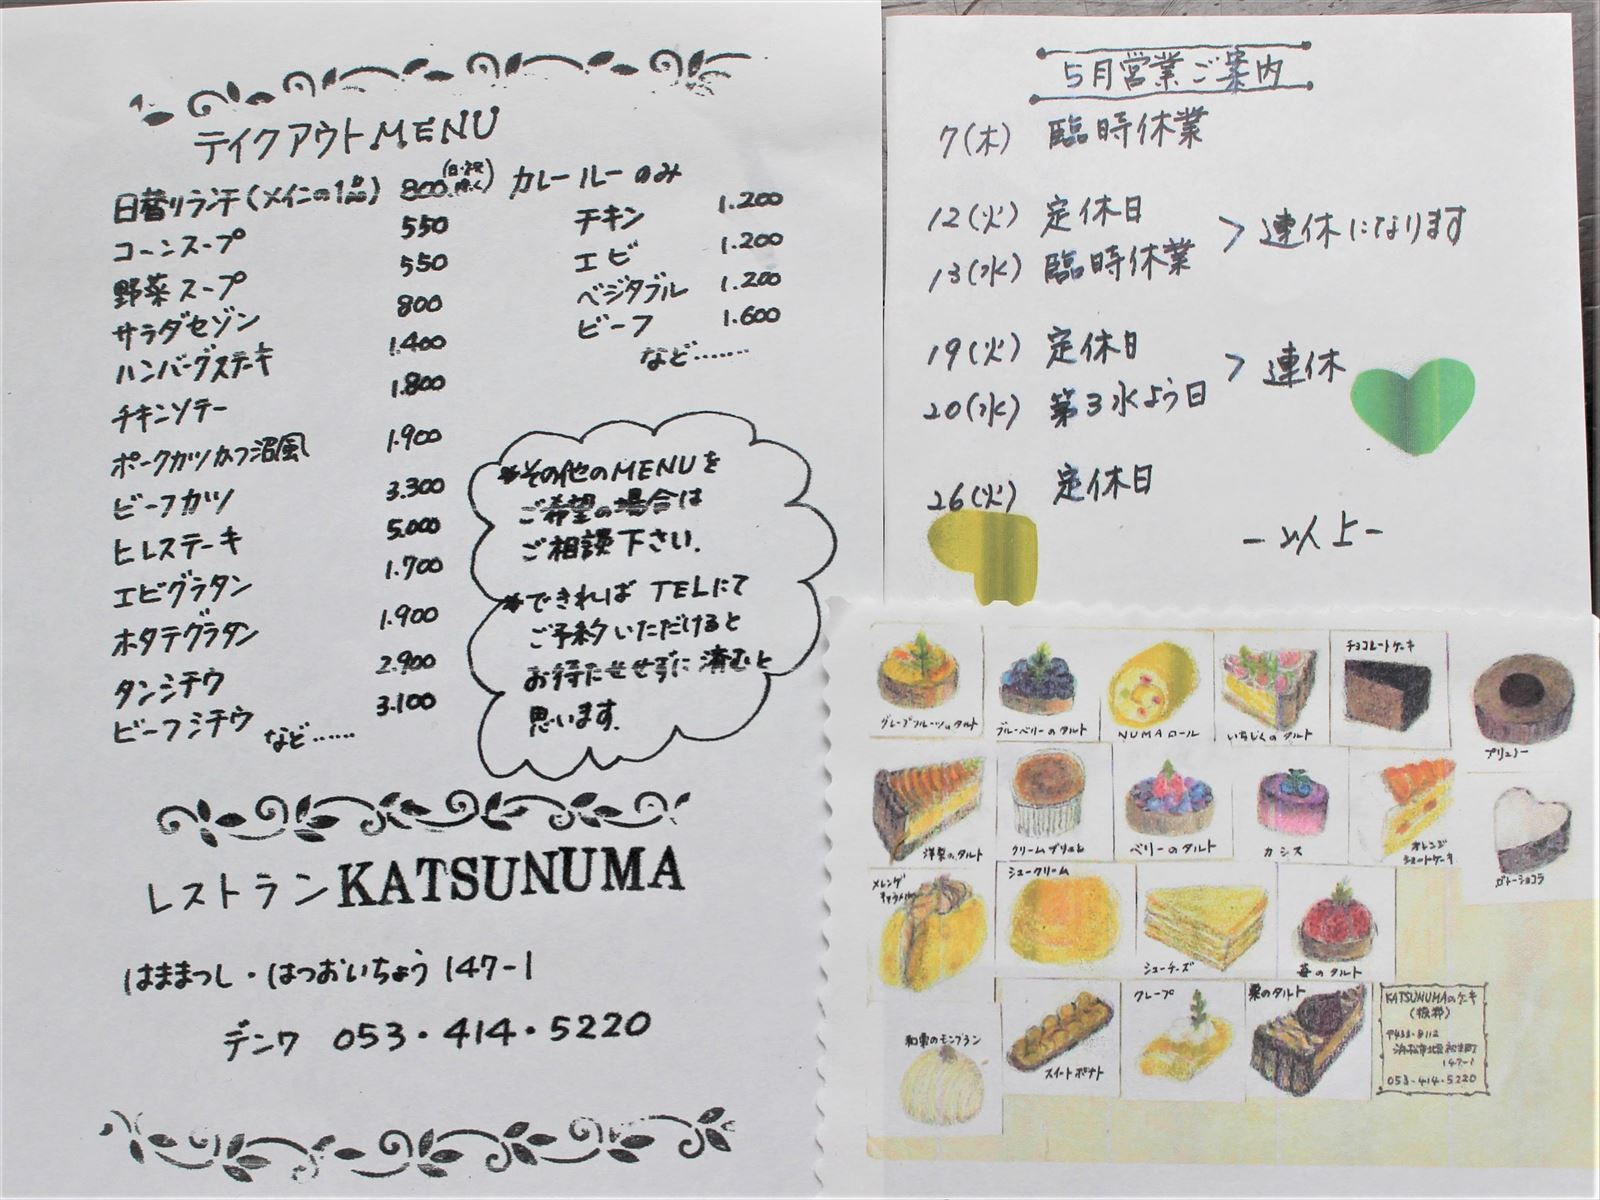 テイクアウトMENU
日替りランチ(メインの1品) 800 (日・祝除く)
コーンスープ 550
野菜スープ 550
サラダセゾン 800
ハンバーグステーキ 1.400
チキンソテー 1.800
ポークカツかつ沼風 1.900
ビーフカツ 3.300
ヒレステーキ 5.000
エビグラタン 1.700
ホタテグラタン 1.900
タンシチウ 2.900
ビーフシチウ 3.100
など……
カレールーのみ
チキン 1.200
エビ 1.200
ベジタブル 1.200
ビーフ 1.600
など……
*その他のMENUを
ご希望の場合は
ご相談下さい.
*できれば TELにて
ご予約いただけると
お待たせせずに済むと
思います.
レストランKATSUNUMA
はままつし・はつおいちょう 147-1
デンワ 053・414・5220
5月営業ご案内
7(木) 臨時休業
12(火) 定休日
13(水) 臨時休業
> 連休になります
19(火) 定休日
20(水) 第3水よう日
> 連休
26(火) 定休日
-以上-
グレープフルーツのタルト
ブルーベリーのタルト
NUMAロール
いちじくのタルト
チョコレートケーキ
プリュノー
洋梨のタルト
クリームブリュレ
ベリーのタルト
カシス
オレンジ
ショートケーキ
ガトーショコラ
メレンゲ
キャラメル
シュークリーム
シューチーズ
苺のタルト
和栗のモンブラン
スイートポテト
クレープ
栗のタルト
KATSUNUMAのケーキ
(抜粋)
〒433-8112
浜松市北区初生町
147-1
053-414-5220